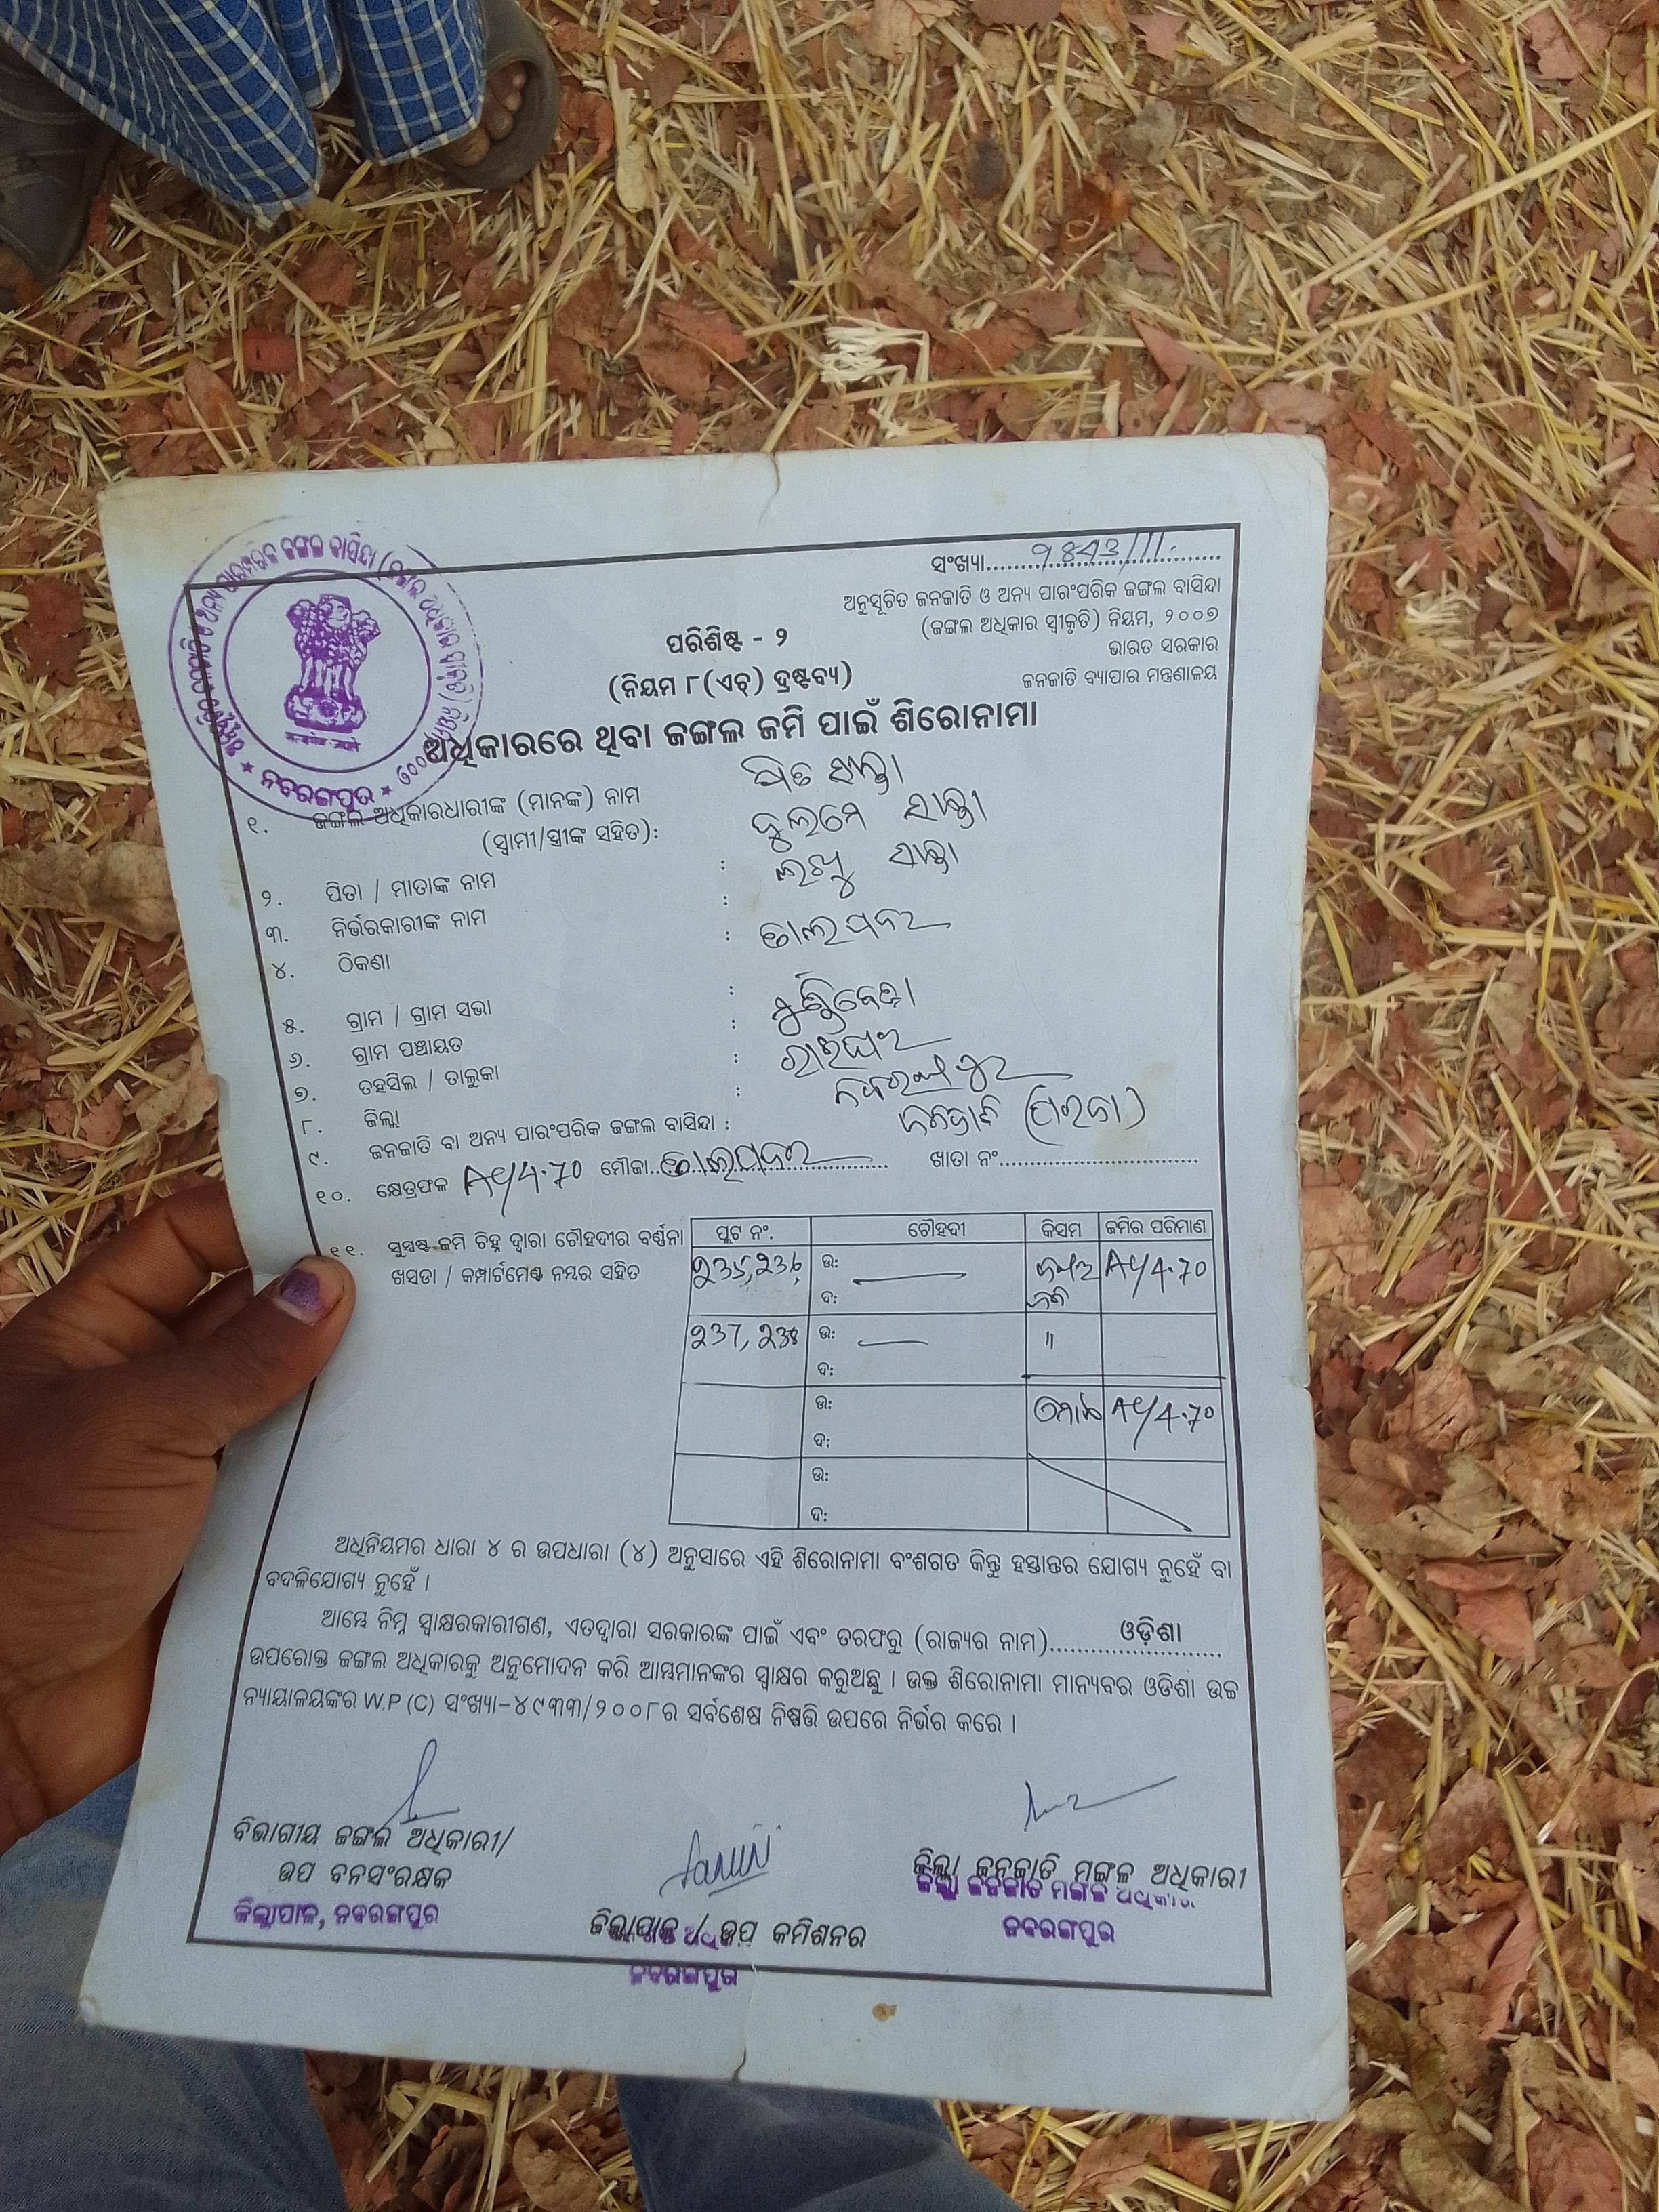 ସଂଖ୍ୟା
ଅନୁସୂଚିତ ଜନଜାତି ଓ ଅନ୍ୟ ପାରଂପରିକ ଜଙ୍ଗଲ ବାସିନ୍ଦା
(ଜଙ୍ଗଲ ଅଧିକାର ସ୍ୱୀକୃତି) ନିୟମ, ୨୦୦୭
ଭାରତ ସରକାର
ଜନଜାତି ବ୍ୟାପାର ମନ୍ତ୍ରଣାଳୟ
ପରିଶିଷ୍ଟ - ୨
(ନିୟମ ୮(ଏଚ୍) ଦ୍ରଷ୍ଟବ୍ୟ)
ଅଧିକାରରେ ଥିବା ଜଙ୍ଗଲ ଜମି ପାଇଁ ଶିରୋନାମା
ନବରଙ୍ଗପୁର
୧. ଜଙ୍ଗଲ ଅଧିକାରଧାରୀଙ୍କ (ମାନଙ୍କ) ନାମ
(ସ୍ୱାମୀ/ସ୍ତ୍ରୀଙ୍କ ସହିତ):
୨. ପିତା / ମାତାଙ୍କ ନାମ :
୩. ନିର୍ଭରକାରୀଙ୍କ ନାମ :
୪. ଠିକଣା :
୫. ଗ୍ରାମ / ଗ୍ରାମ ସଭା :
୬. ଗ୍ରାମ ପଞ୍ଚାୟତ :
୭. ତହସିଲ / ତାଲୁକା : ରାଇଘର
୮. ଜିଲ୍ଲା : ନବରଙ୍ଗପୁର
୯. ଜନଜାତି ବା ଅନ୍ୟ ପାରଂପରିକ ଜଙ୍ଗଲ ବାସିନ୍ଦା :
୧୦. କ୍ଷେତ୍ରଫଳ 4.70 ମୌଜା ଖାତା ନଂ
୧୧. ସୁସ୍ପଷ୍ଟ ଜମି ଚିହ୍ନ ଦ୍ୱାରା ଚୌହଦୀର ବର୍ଣ୍ଣନା
ଖସଡା / କମ୍ପାର୍ଟମେଣ୍ଟ ନମ୍ବର ସହିତ
ପ୍ଲଟ ନଂ. ଚୌହଦୀ କିସମ ଜମିର ପରିମାଣ
235, 236, ଉ: ଜଙ୍ଗଲ 4.70
ଦ: ଜମି
237, 238 ଉ: "
ଦ:
ଉ: ମୋଟ 4.70
ଦ:
ଉ:
ଦ:
ଅଧିନିୟମର ଧାରା ୪ ର ଉପଧାରା (୪) ଅନୁସାରେ ଏହି ଶିରୋନାମା ବଂଶଗତ କିନ୍ତୁ ହସ୍ତାନ୍ତର ଯୋଗ୍ୟ ନୁହେଁ ବା
ବଦଳିଯୋଗ୍ୟ ନୁହେଁ ।
ଆମ୍ଭେ ନିମ୍ନ ସ୍ୱାକ୍ଷରକାରୀଗଣ, ଏତଦ୍ୱାରା ସରକାରଙ୍କ ପାଇଁ ଏବଂ ତରଫରୁ (ରାଜ୍ୟର ନାମ) ଓଡ଼ିଶା
ଉପରୋକ୍ତ ଜଙ୍ଗଲ ଅଧିକାରକୁ ଅନୁମୋଦନ କରି ଆମ୍ଭମାନଙ୍କର ସ୍ୱାକ୍ଷର କରୁଅଛୁ । ଉକ୍ତ ଶିରୋନାମା ମାନ୍ୟବର ଓଡିଶା ଉଚ୍ଚ
ନ୍ୟାୟାଳୟଙ୍କର W.P (C) ସଂଖ୍ୟା-୪୯୩୩/୨୦୦୮ର ସର୍ବଶେଷ ନିଷ୍ପତ୍ତି ଉପରେ ନିର୍ଭର କରେ ।
ବିଭାଗୀୟ ଜଙ୍ଗଲ ଅଧିକାରୀ/
ଉପ ବନସଂରକ୍ଷକ
ଜିଲ୍ଲାପାଳ, ନବରଙ୍ଗପୁର
ଜିଲ୍ଲାପାଳ / ଉପ କମିଶନର
ନବରଙ୍ଗପୁର
ଜିଲ୍ଲା ଜନଜାତି ମଙ୍ଗଳ ଅଧିକାରୀ
ଜିଲ୍ଲା ଜନଜାତି ମଙ୍ଗଳ
ନବରଙ୍ଗପୁର